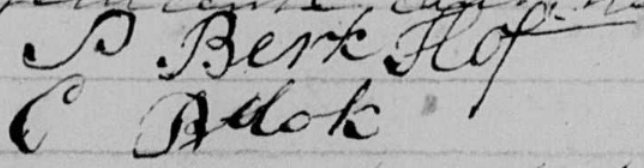 P Berk Hof
C Blok